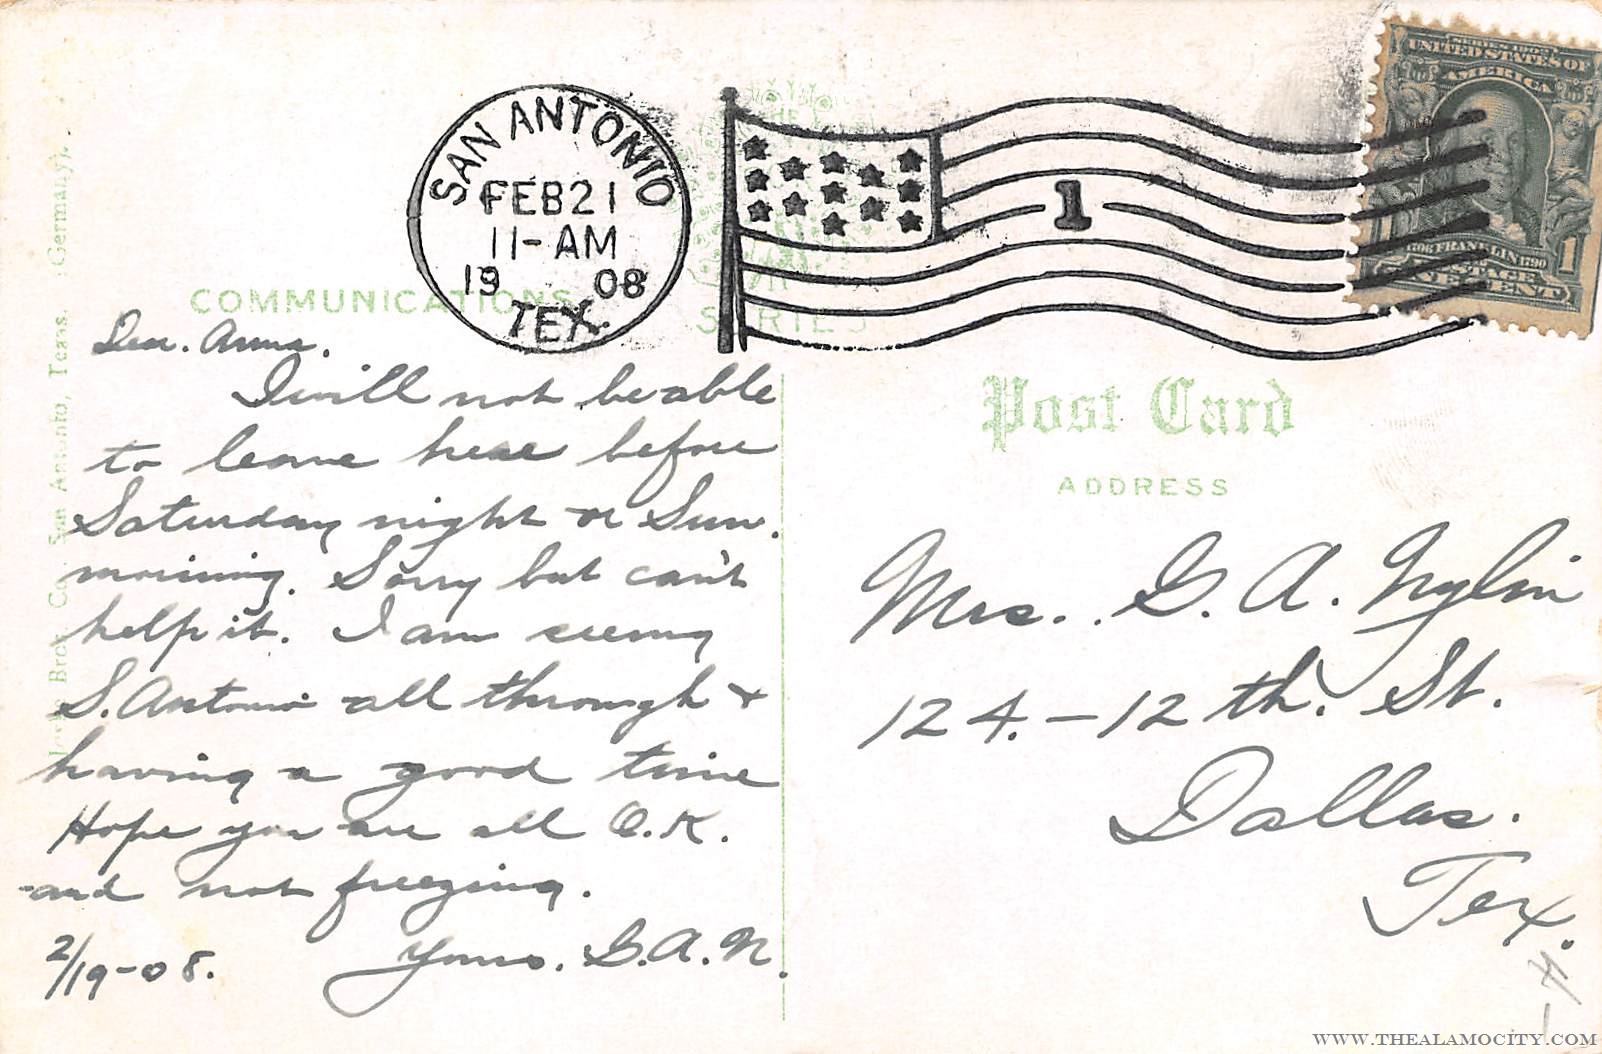 SAN ANTONIO
FEB 21
11-AM
19 08
TEX.
1
SERIES 1902
UNITED STATES OF
AMERICA
1706 FRANKLIN 1790
POSTAGE
1
ONE CENT
COMMUNICATIONS
SERIES
Post Card
ADDRESS
Bros. Co., San Antonio, Texas. (Germany).
Dear. Anna.
I will not be able
to leave here before
Saturday night or Sun.
morning. Sorry but can't
help it. I am seeing
S. Antonio all through &
having a good time
Hope you are all O.K.
and not freezing.
2/19-08. Yours. G. A. N.
Mrs. G. A. Nylin
124.-12th. St.
Dallas.
Tex.
WWW.THEALAMOCITY.COM